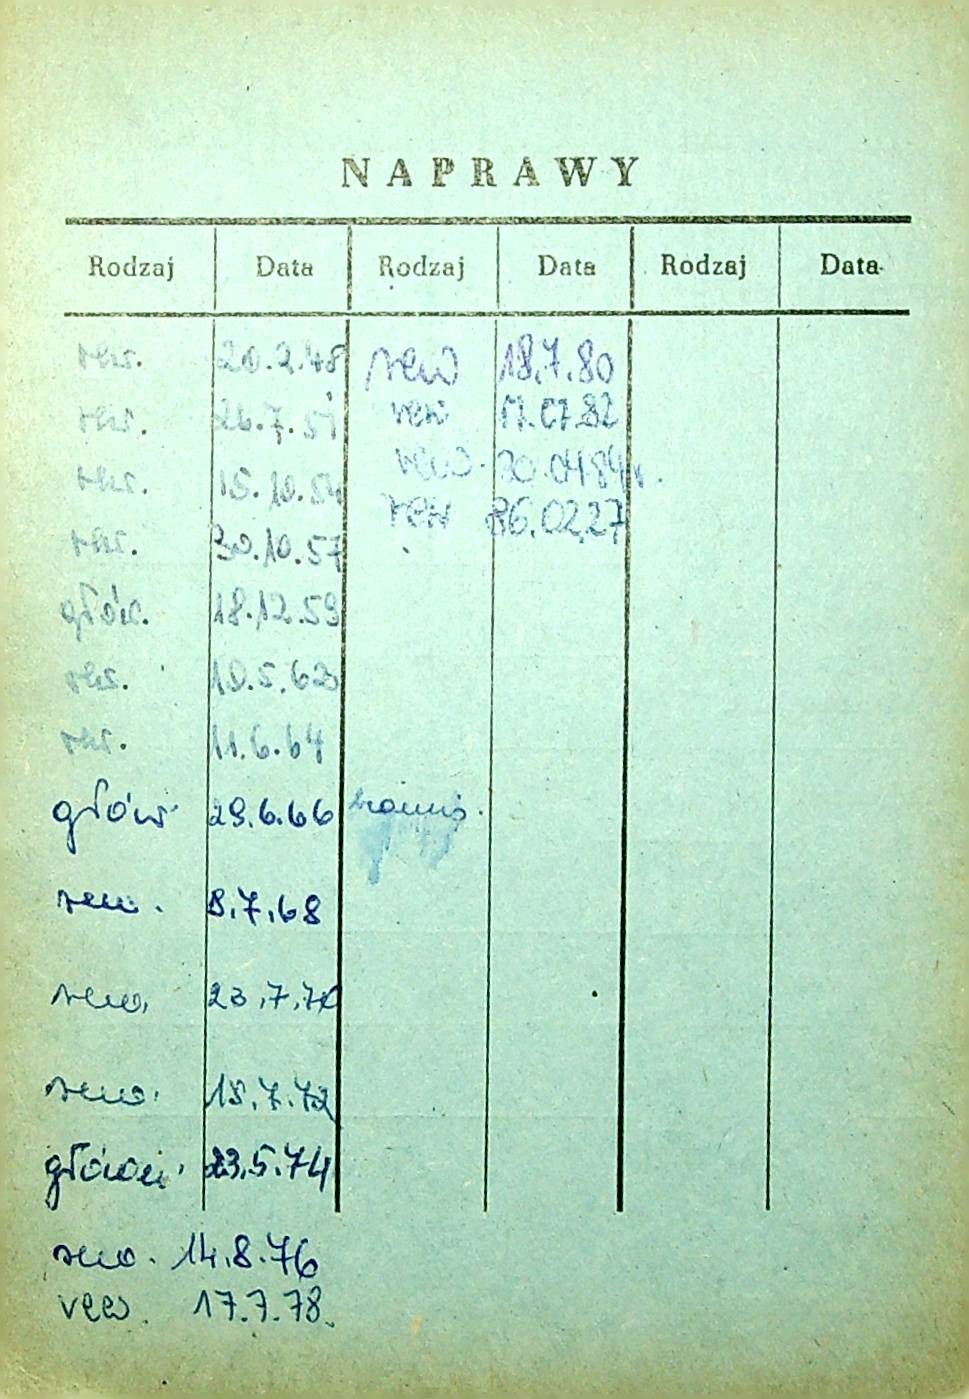 NAPRAWY
Rodzaj Data Rodzaj Data Rodzaj Data
śkr. 20.2.48 rew 18.7.80
śkr. 26.7.51 rew 17.07.82
śkr. 15.10.54 rew. 30.04.84r.
śkr. 30.10.57 rew 86.02.27
głów. 18.12.59
śkr. 10.5.62
śkr. 11.6.64
głów. 29.6.66
rew. 8.7.68
rew. 23.7.70
rew. 18.7.72
główn. 23.5.74
rew. 14.8.76
rew. 17.7.78.